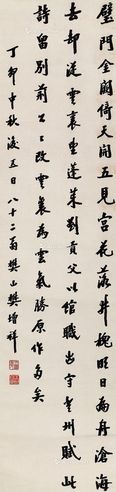 璧門金闕倚天開五見宮花落井槐明日扁舟滄海
去却從雲裏望蓬萊劉貢父以館職出守曹州賦此
詩留別荊公公改雲裏為雲氣勝原作多矣
丁卯中秋後五日八十二翁樊山樊增祥